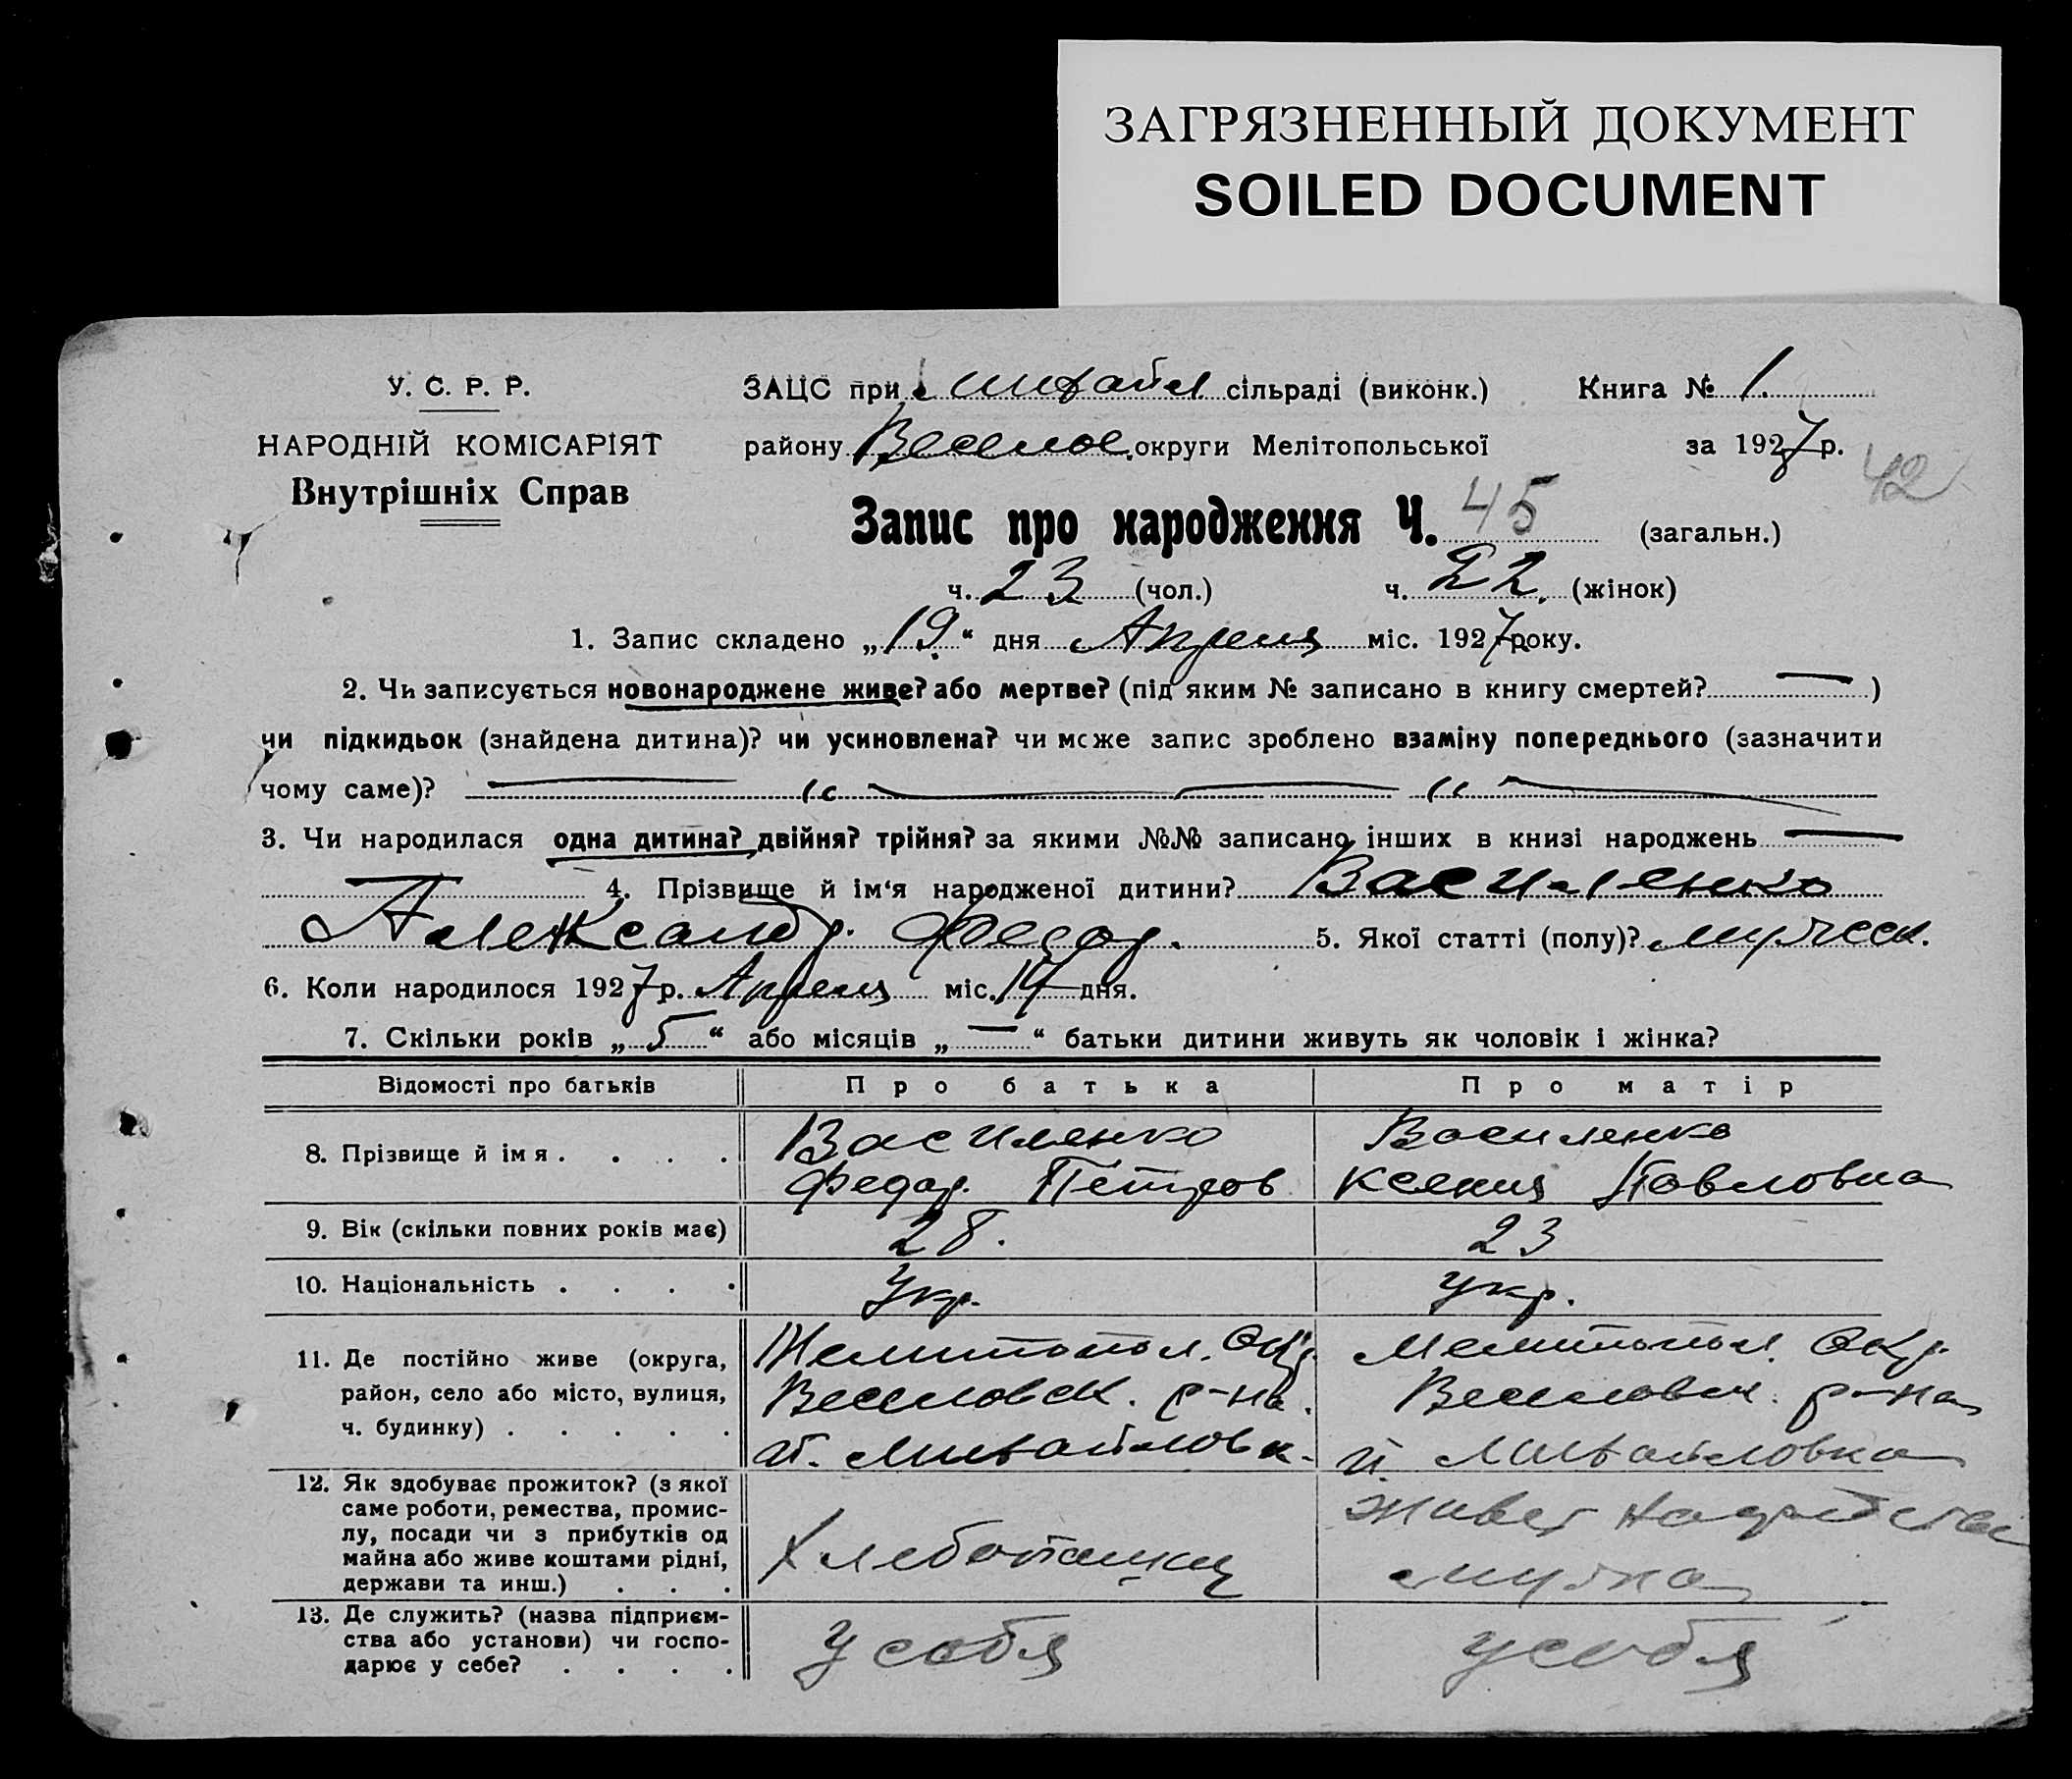 ЗАГРЯЗНЕННЫЙ ДОКУМЕНТ
SOILED DOCUMENT
У. С. Р. Р.
НАРОДНІЙ КОМІСАРІЯТ
Внутрішніх Справ
ЗАЦС при Михайл сільраді (виконк.) Книга № 1.
району Веселос. округи Мелітопольської за 1927 р.
42
Запис про народження Ч. 45 (загальн.)
ч. 23 (чол.) ч. 22. (жінок)
1. Запис складено „19“ дня Апреля міс. 1927 року.
2. Чи записується новонароджене живе? або мертве? (під яким № записано в книгу смертей? — )
чи підкидьок (знайдена дитина)? чи усиновлена? чи може запис зроблено взаміну попереднього (зазначити
чому саме)? — „ — „ —
3. Чи народилася одна дитина? двійня? трійня? за якими №№ записано інших в книзі народжень —
— 4. Прізвище й ім‘я народженої дитини? Василенко
Александр. Федор. 5. Якої статті (полу)? мужеск.
6. Коли народилося 1927 р. Апреля міс. 14 дня.
7. Скільки років „5“ або місяців „—“ батьки дитини живуть як чоловік і жінка?
Відомості про батьків Про батька Про матір
8. Прізвище й імя . . . .
Василенко
Федор. Петров
Василенко
Ксения Павловна
9. Вік (скільки повних років має) 28. 23
10. Національність . . . . Укр. укр.
11. Де постійно живе (округа,
район, село або місто, вулиця,
ч. будинку) . . . . .
Мелитопол. Окр.
Веселовск. р-на.
п. Михайловк.
Мелитопол. Окр.
Веселовск. р-на
п. Михайловка
12. Як здобуває прожиток? (з якої
саме роботи, ремества, промис-
лу, посади чи з прибутків од
майна або живе коштами рідні,
держави та инш.) . . .
Хлебопашец
живет на средства
мужа
13. Де служить? (назва підприєм-
ства або установи) чи госпо-
дарює у себе? . . . .
у себя
у себя